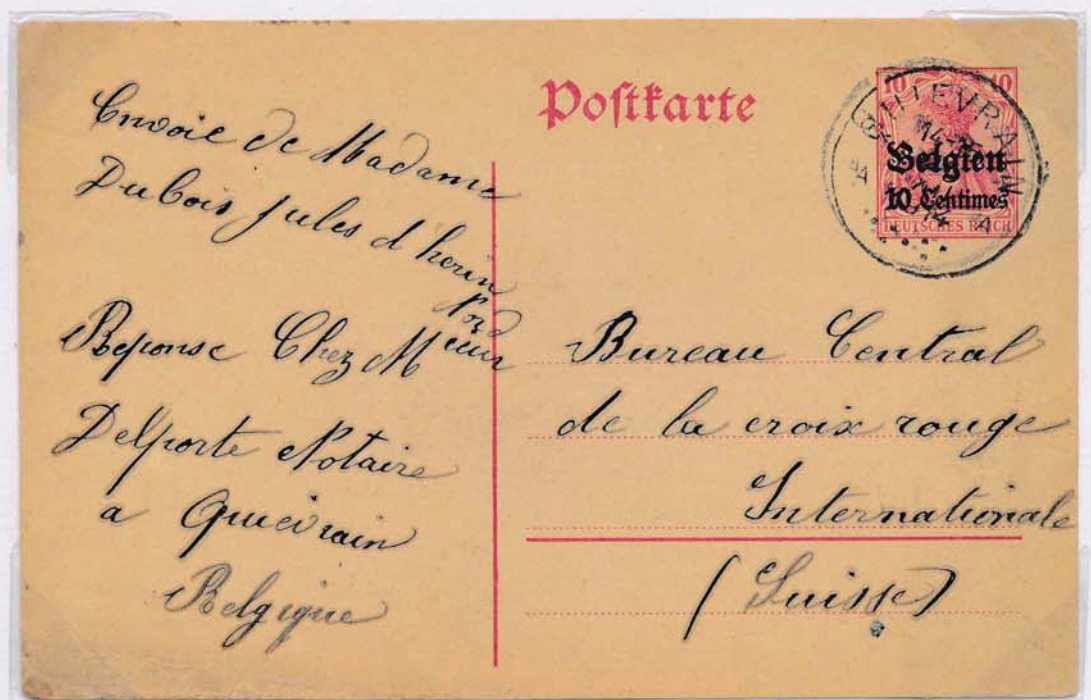 Postkarte
10 10
Belgien
10 Centimes
DEUTSCHES REICH
QUIEVRAIN
Envoie de Madame
Dubois Jules d herin
Nord
Reponse Chez Mcieur
Delporte Notaire
a Quievrain
Belgique
Bureau Central
de la croix rouge
Internationale
(Suisse)